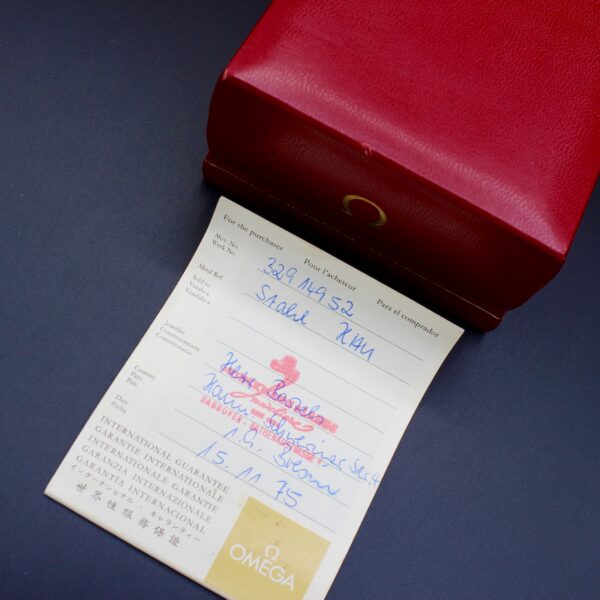 For the purchaser Pour l'acheteur Para el comprador
Mov. No.
Work No.
32914952
Metal Ref.
Stahl
Sold to
Vendu à
Vendido a
Jeweller
Concessionnaire
Concesionario
Herr
HANNOVER
Country
Pays
País
Date
Fecha
15.11.75
INTERNATIONAL GUARANTEE
GARANTIE INTERNATIONALE
INTERNATIONALE GARANTIE
GARANZIA INTERNAZIONALE
GARANTIA INTERNACIONAL
インターナショナル・ギャランティー
世界性服務保證
Ω
OMEGA